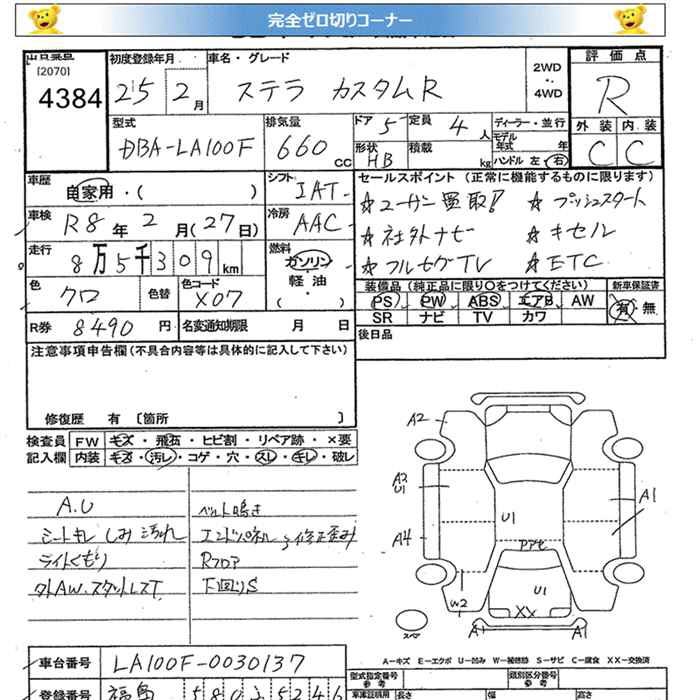 完全ゼロ切りコーナー
出品票点
[2070]
4384
初度登録年月 25 2月
車名・グレード ステラ カスタムR
2WD・4WD
評価点 R
外装 C 内装 C
型式 DBA-LA100F
排気量 660 cc
ドア 5 定員 4 人
形状 HB 積載 kg
ディーラー・並行
モデル年式 年式
ハンドル 左 右
車歴 自家用・( )
シフト IAT
車検 R8年2月(27日)
冷房 AAC
走行 8万5千309km
燃料 ガソリン・軽油 ( )
色 クロ 色替 色コード X07
R券 8490円 名変通知期限 月 日
セールスポイント(正常に機能するものに限ります)
☆ユーザー買取! ☆プッシュスタート
☆社外ナビ ☆キセル
☆フルセグTV ☆ETC
装備品(純正品に限り○をつけてください) 新車保証書
PS PW ABS エアB AW 有・無
SR ナビ TV カワ
後日品
注意事項申告欄(不具合内容等は具体的に記入して下さい)
修復歴 有 〔箇所 〕
検査員 FW キズ・飛石・ヒビ割・リペア跡・×要
記入欄 内装 キズ・汚レ・コゲ・穴・スレ・キレ・破レ
A.U
シートキレ しみ 汚れ
ライトくもり
外AW.スタットレスT
ベルト鳴き
エンドパネル 修正歪み
Rフロア
下回りS
A2
A2 U1
A4
W2
U1
U1
XX
A1
A1
A1
スペア
A-キズ E-エクボ U-凹み W-補修跡 S-サビ C-腐食 XX-交換済
車台番号 LA100F-0030137
登録番号 福島 580 5246
型式指定番号 参考 類別区分番号 参考
車庫証明用 長さ 幅 高さ